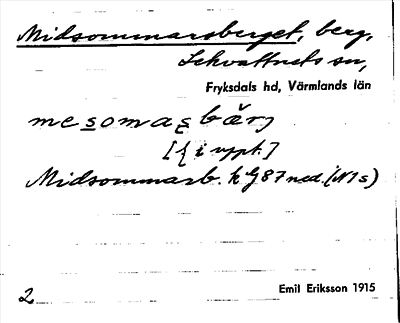 Midsommarsberget, berg,
Lekvattnets sn,
Fryksdals hd, Värmlands län
mesomasbärj
[ i uppt.]
Midsommarb. k G 87 ned. (N 1 s)
2
Emil Eriksson 1915